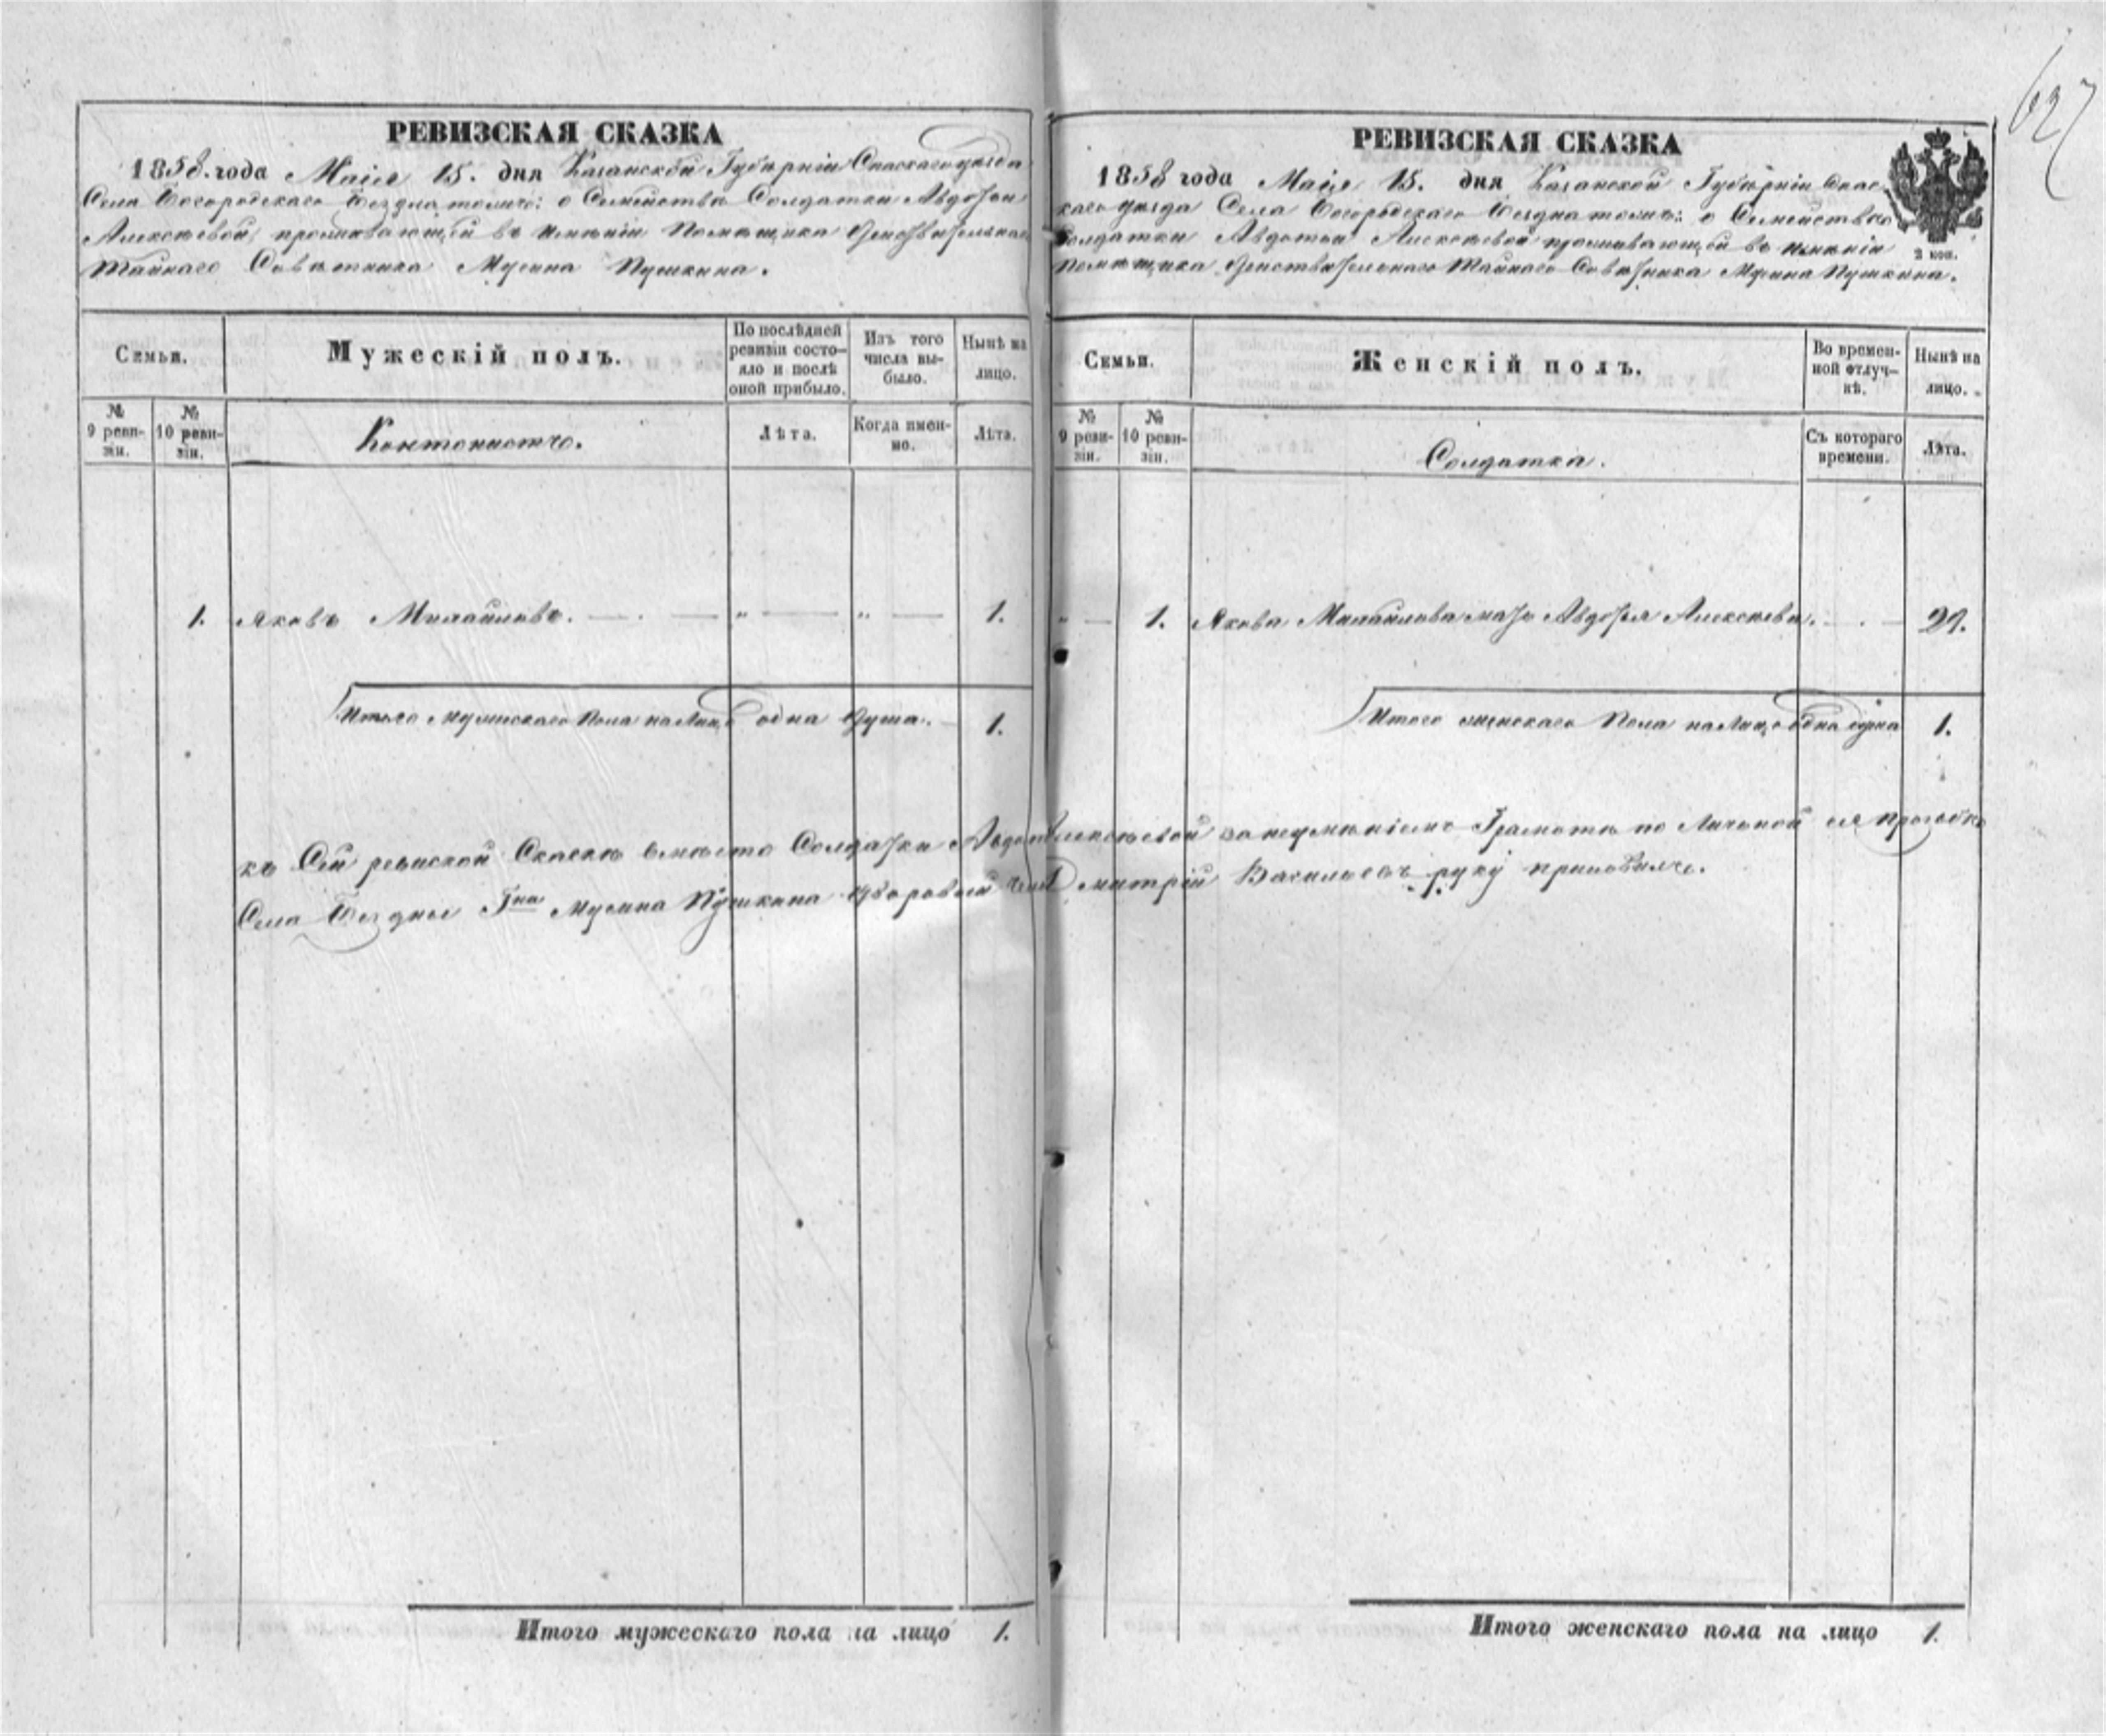 627
РЕВИЗСКАЯ СКАЗКА
1858. года Маія 15. дня Казанской Губерніи Спаскаго уезда
Села Богородскаго Бездна тожъ: о Семействе Солдатки Авдотьи
Алексеевой, проживающей въ именіи Помещика Действительнаго
Тайнаго Советника Мусина Пушкина.
Семьи.
Мужескій полъ.
По послѣдней ревизіи состояло и послѣ оной прибыло.
Изъ того числа выбыло.
Нынѣ на лицо.
№ 9 ревизіи.
№ 10 ревизіи.
Контонистъ.
Лѣта.
Когда именно.
Лѣта.
1. Яковъ Михайловъ. — . — „ — „ — 1.
Итого мужескаго Пола на Лицо одна душа. 1.
Итого мужескаго пола на лицо 1.
РЕВИЗСКАЯ СКАЗКА
1858 года Маія 15. дня Казанской Губерніи Спас
каго уезда Села Богородскаго Бездна тожъ: о Семействе
Солдатки Авдотьи Алексеевой проживающей въ именіи
Помещика Действительнаго Тайнаго Советника Мусина Пушкина.
2 коп.
Семьи.
Женскій полъ.
Во временной отлучкѣ.
Нынѣ на лицо.
№ 9 ревизіи.
№ 10 ревизіи.
Солдатка.
Съ котораго времени.
Лѣта.
„ — 1. Якова Михайлова мать Авдотья Алексеева. — . — 29.
Итого женскаго Пола на Лицо одна душа 1.
къ Сей ревиской Скаске вместо Солдатки Авдотьи Алексеевой за неуменіемъ Грамоте по Личьной ея прозьбе
Села Бездны Гна Мусина Пушкина дворовый чел Дмитрій Васильевъ руку приложилъ.
Итого женскаго пола на лицо 1.